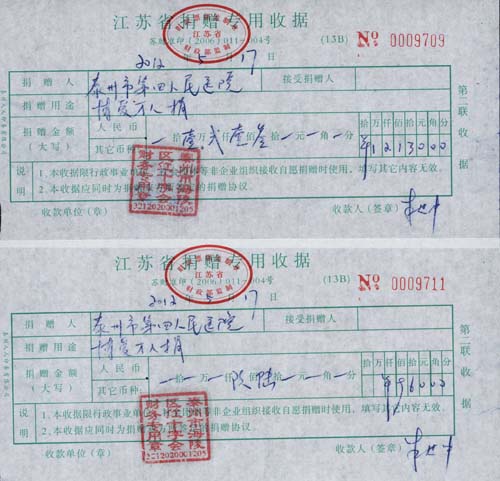 江苏省捐赠专用收据
苏财京印(2006)011-004号
(13B)
№ 0009709
2012年5月17日
捐赠人
泰州市第四人民医院
接受捐赠人
捐赠用途
博爱万人捐
捐赠金额
(大写)
人民币
其它币种
壹 万 贰 仟 壹 佰 叁
拾万仟佰拾元角分
¥1213000
说明
1.本收据限行政事业单位
等非企业组织接收自愿捐赠时使用,填写其它内容无效。
2.本收据应同时为捐赠
的捐赠协议。
收款单位(章)
收款人(签章)
第二联收据
江苏省
财政部监制
泰州市海陵
区红十字会
财务专用章
3212020001205
江苏省捐赠专用收据
苏财京印(2006)011-004号
(13B)
№ 0009711
2012年5月17日
捐赠人
泰州市第四人民医院
接受捐赠人
捐赠用途
博爱万人捐
捐赠金额
(大写)
人民币
其它币种
拾万仟佰拾元角分
¥96000
说明
1.本收据限行政事业单
等非企业组织接收自愿捐赠时使用,填写其它内容无效。
2.本收据应同时为捐赠
的捐赠协议。
收款单位(章)
收款人(签章)
第二联收据
江苏省
财政部监制
泰州市海陵
区红十字会
财务专用章
3212020001205